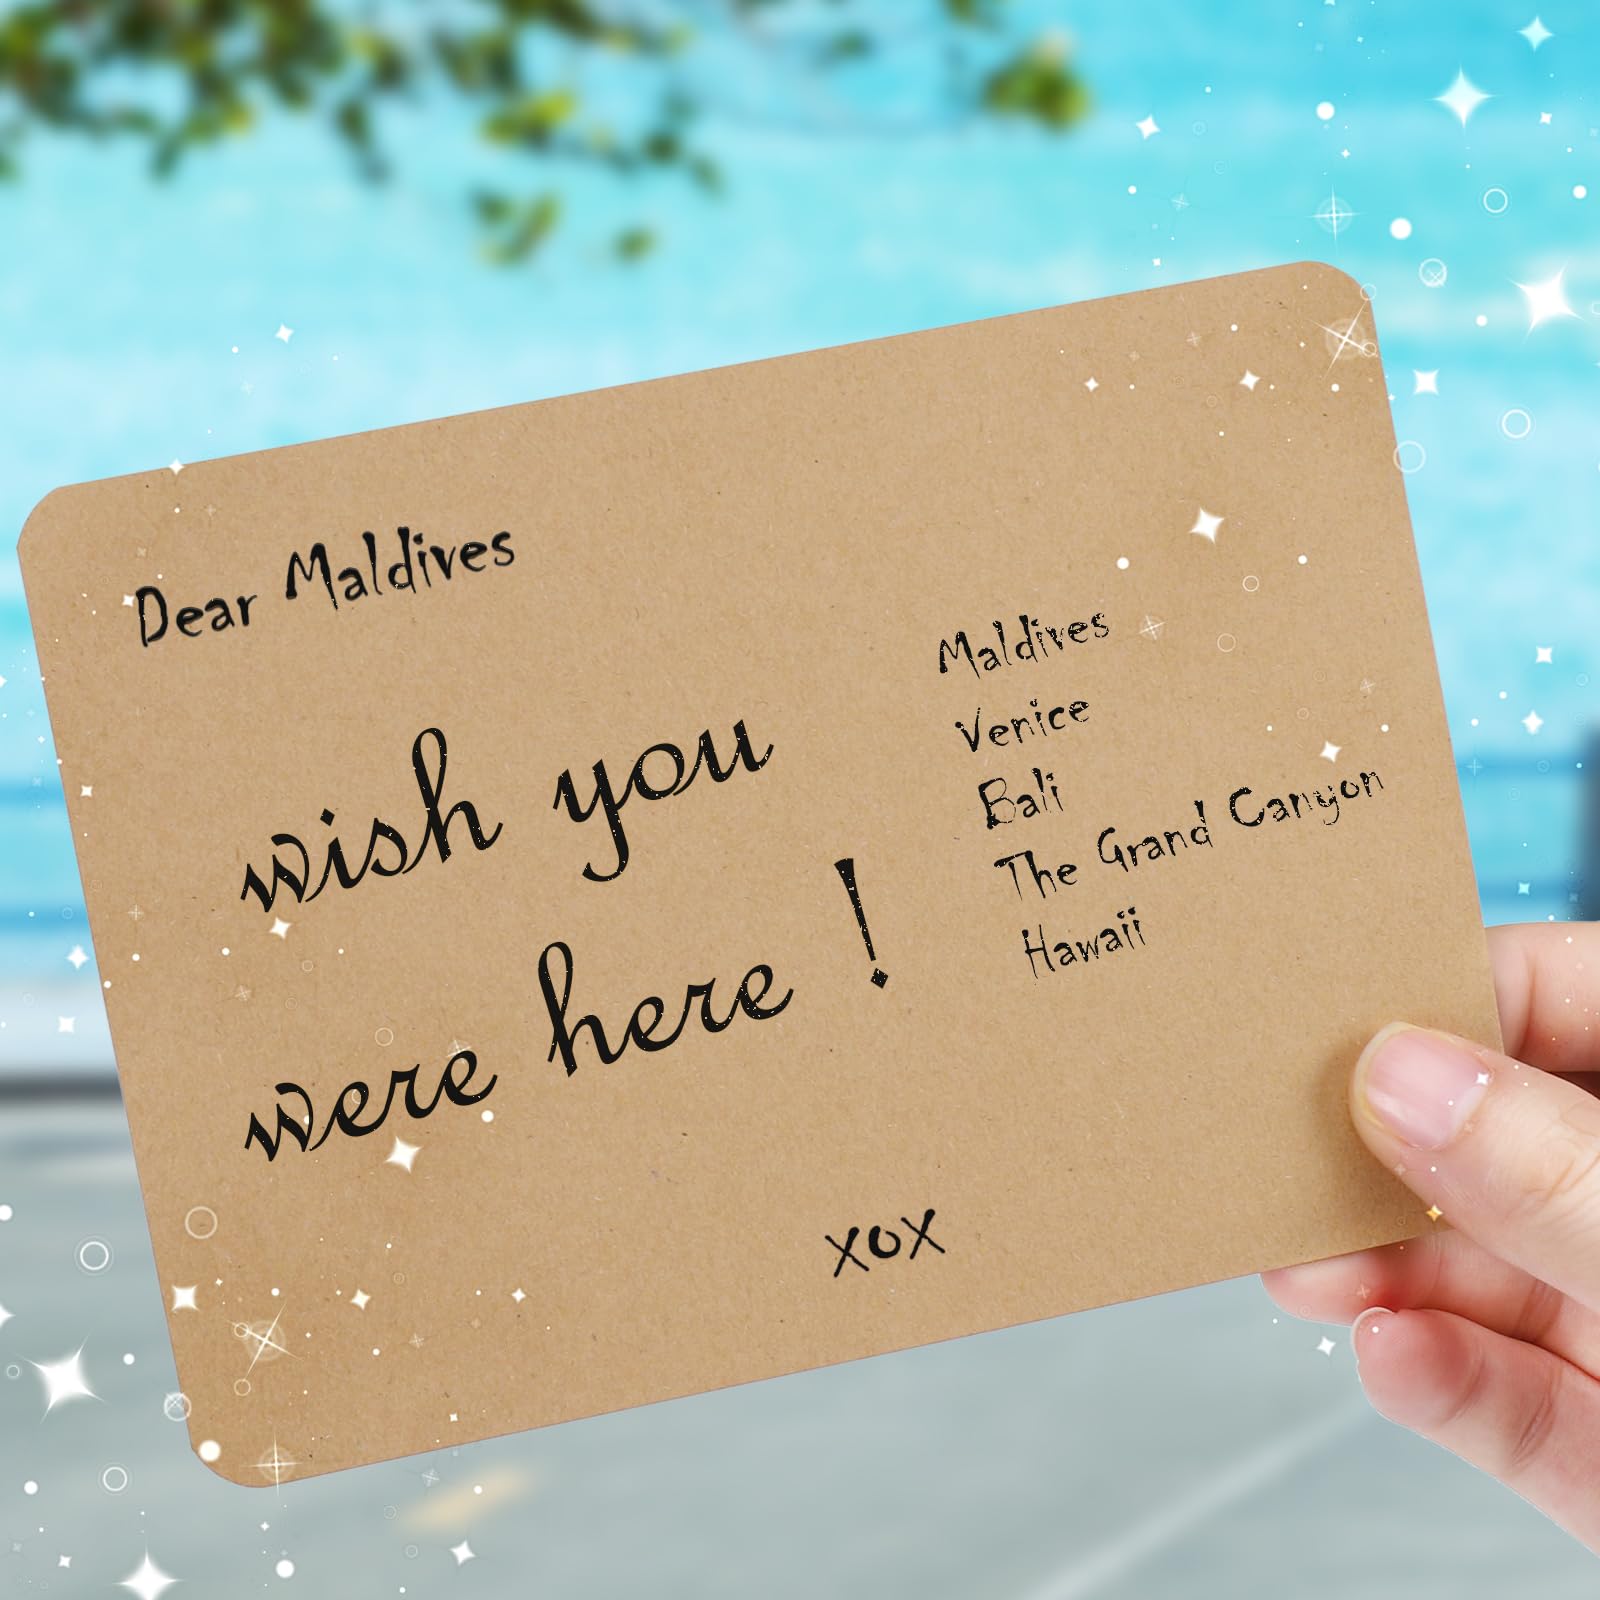 Dear Maldives
wish you
were here !
Maldives
Venice
Bali
The Grand Canyon
Hawaii
xox